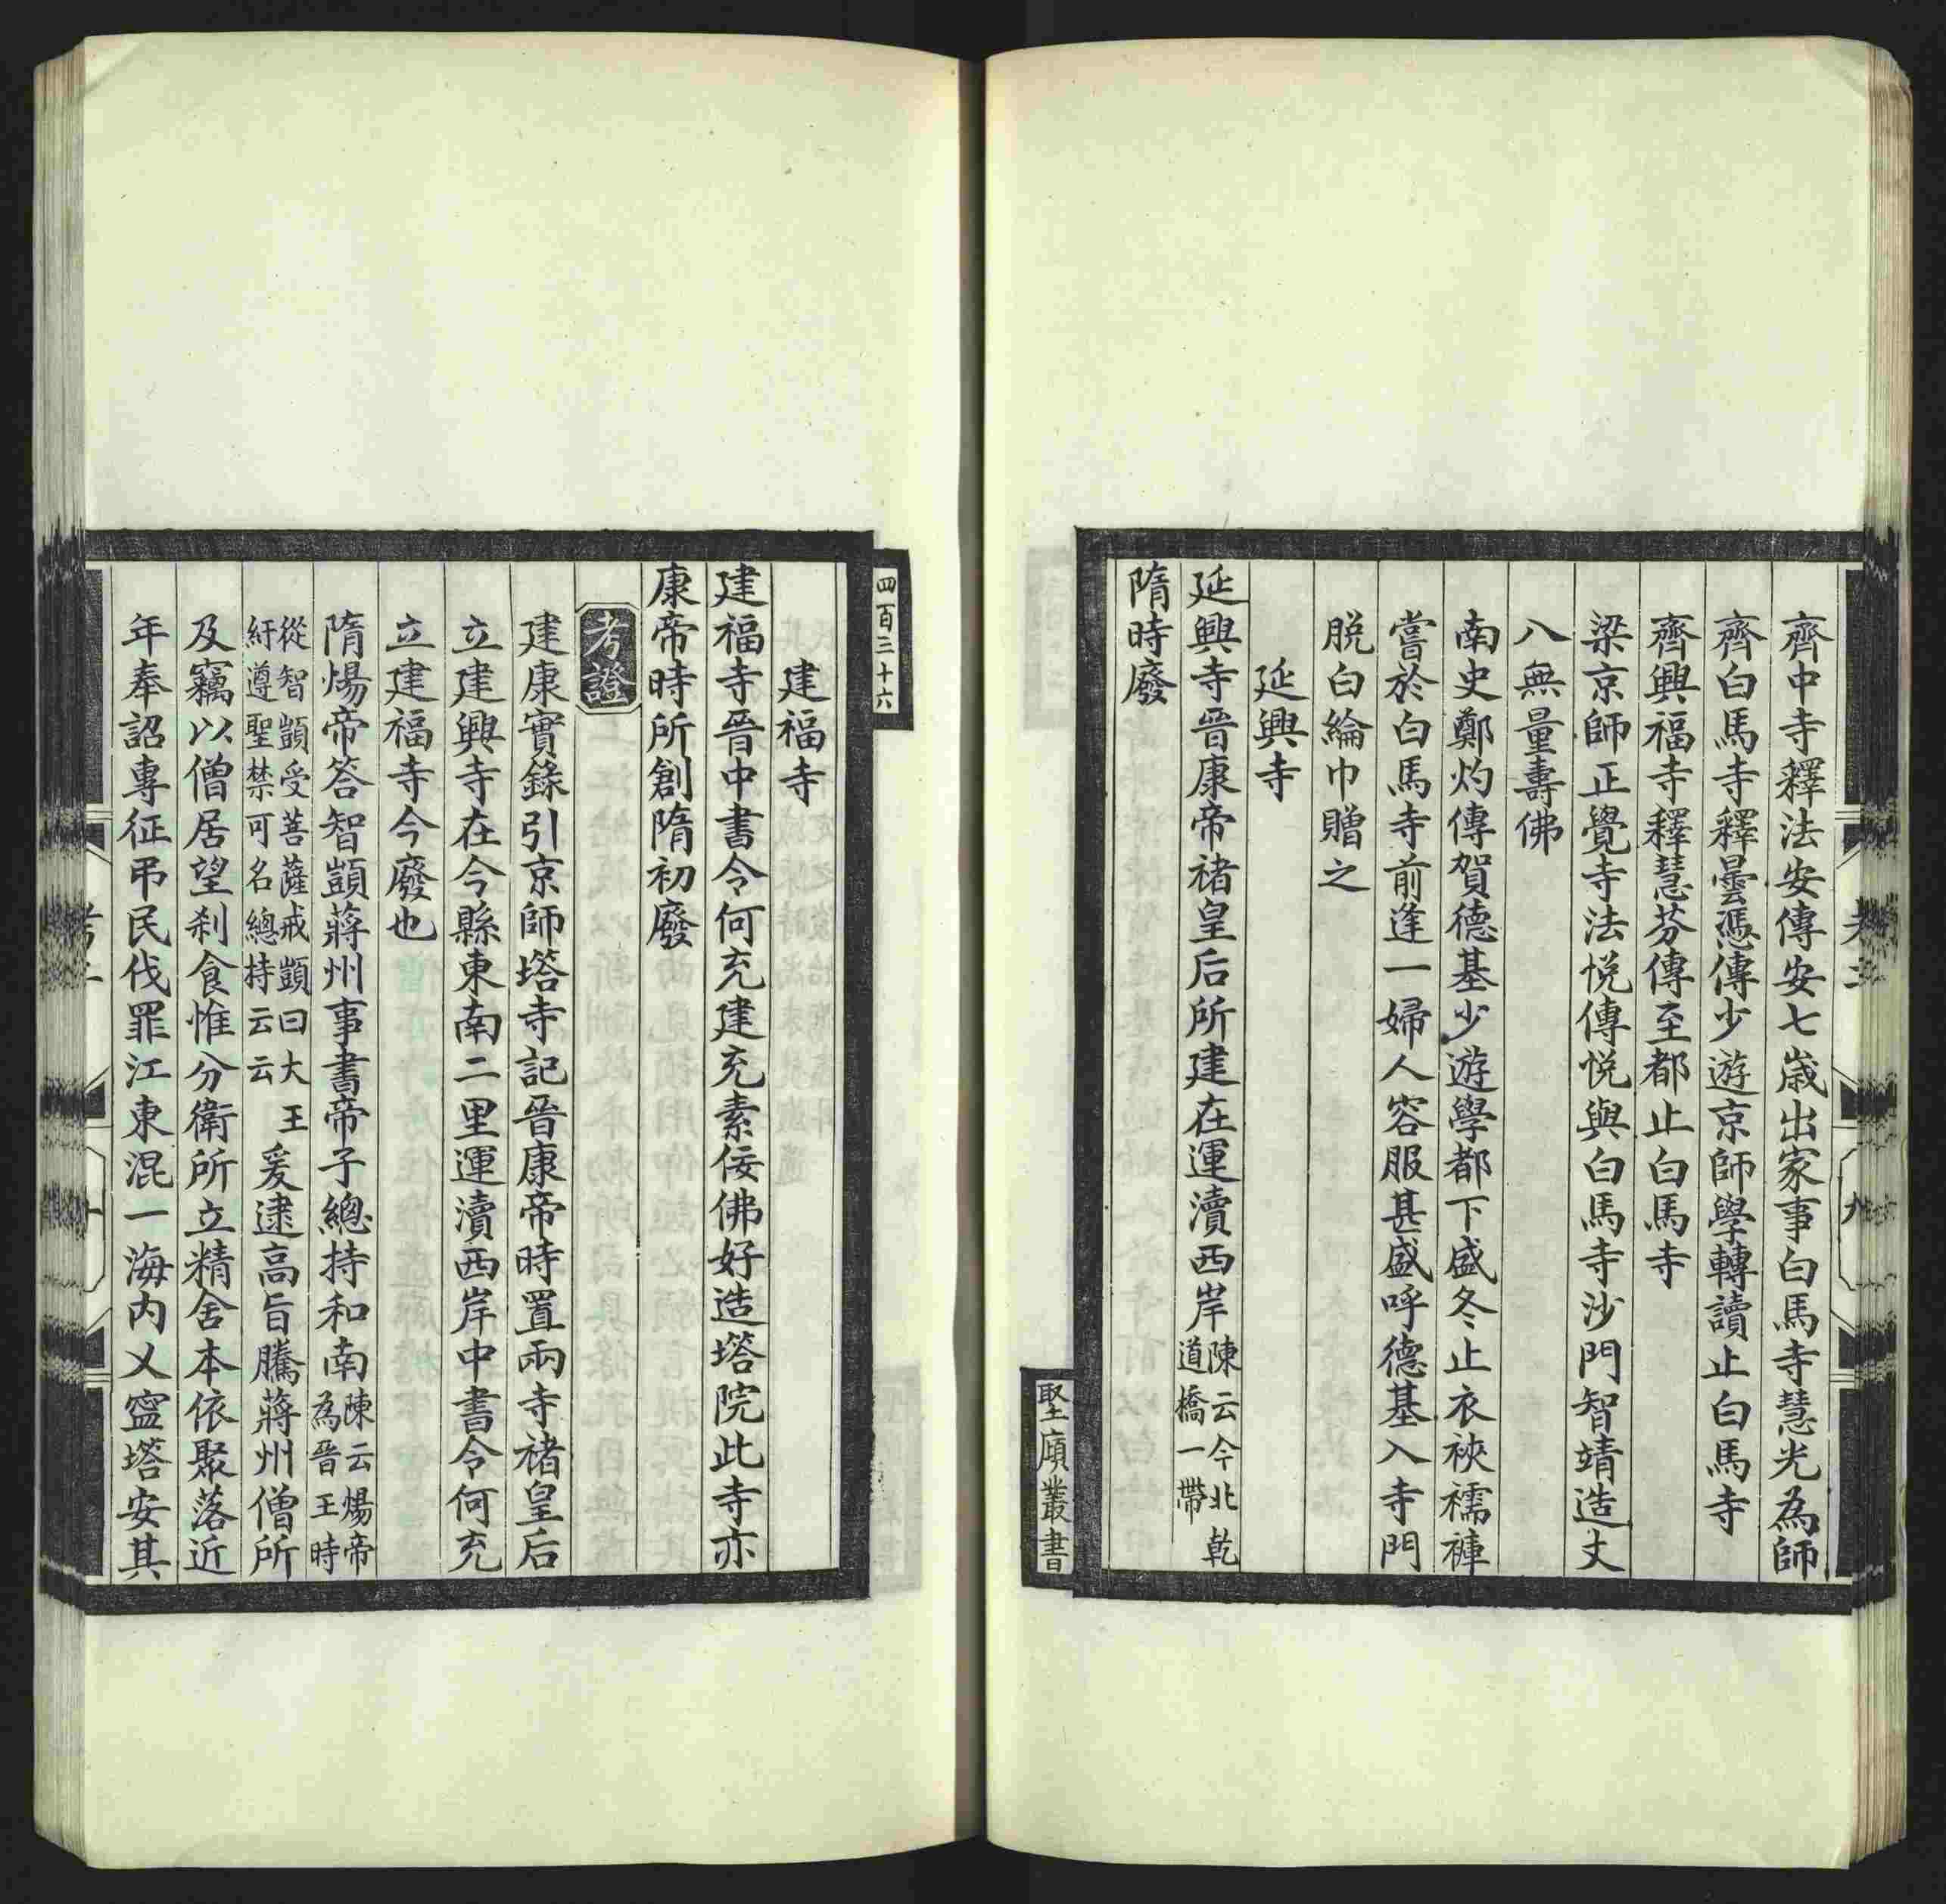 齊中寺釋法安傳安七歲出家事白馬寺慧光為師
齊白馬寺釋曇憑傳少遊京師學轉讀止白馬寺
齊興福寺釋慧芬傳至都止白馬寺
梁京師正覺寺法悅傳悅與白馬寺沙門智靖造丈
八無量壽佛
南史鄭灼傳賀德基少遊學都下盛冬止衣裌襦褲
嘗於白馬寺前逢一婦人容服甚盛呼德基入寺門
脫白綸巾贈之
延興寺
延興寺晉康帝褚皇后所建在運瀆西岸陳云今北乾
道橋一帶
隋時廢
堅廎叢書
四百三十六
建福寺
建福寺晉中書令何充建充素佞佛好造塔院此寺亦
康帝時所創隋初廢
考證
建康實錄引京師塔寺記晉康帝時置兩寺褚皇后
立建興寺在今縣東南二里運瀆西岸中書令何充
立建福寺今廢也
隋煬帝答智顗蔣州事書帝子總持和南陳云煬帝
為晉王時
從智顗受菩薩戒顗曰大王
紆遵聖禁可名總持云云
爰逮高旨騰蔣州僧所
及竊以僧居望刹食惟分衛所立精舍本依聚落近
年奉詔專征弔民伐罪江東混一海內乂寍塔安其